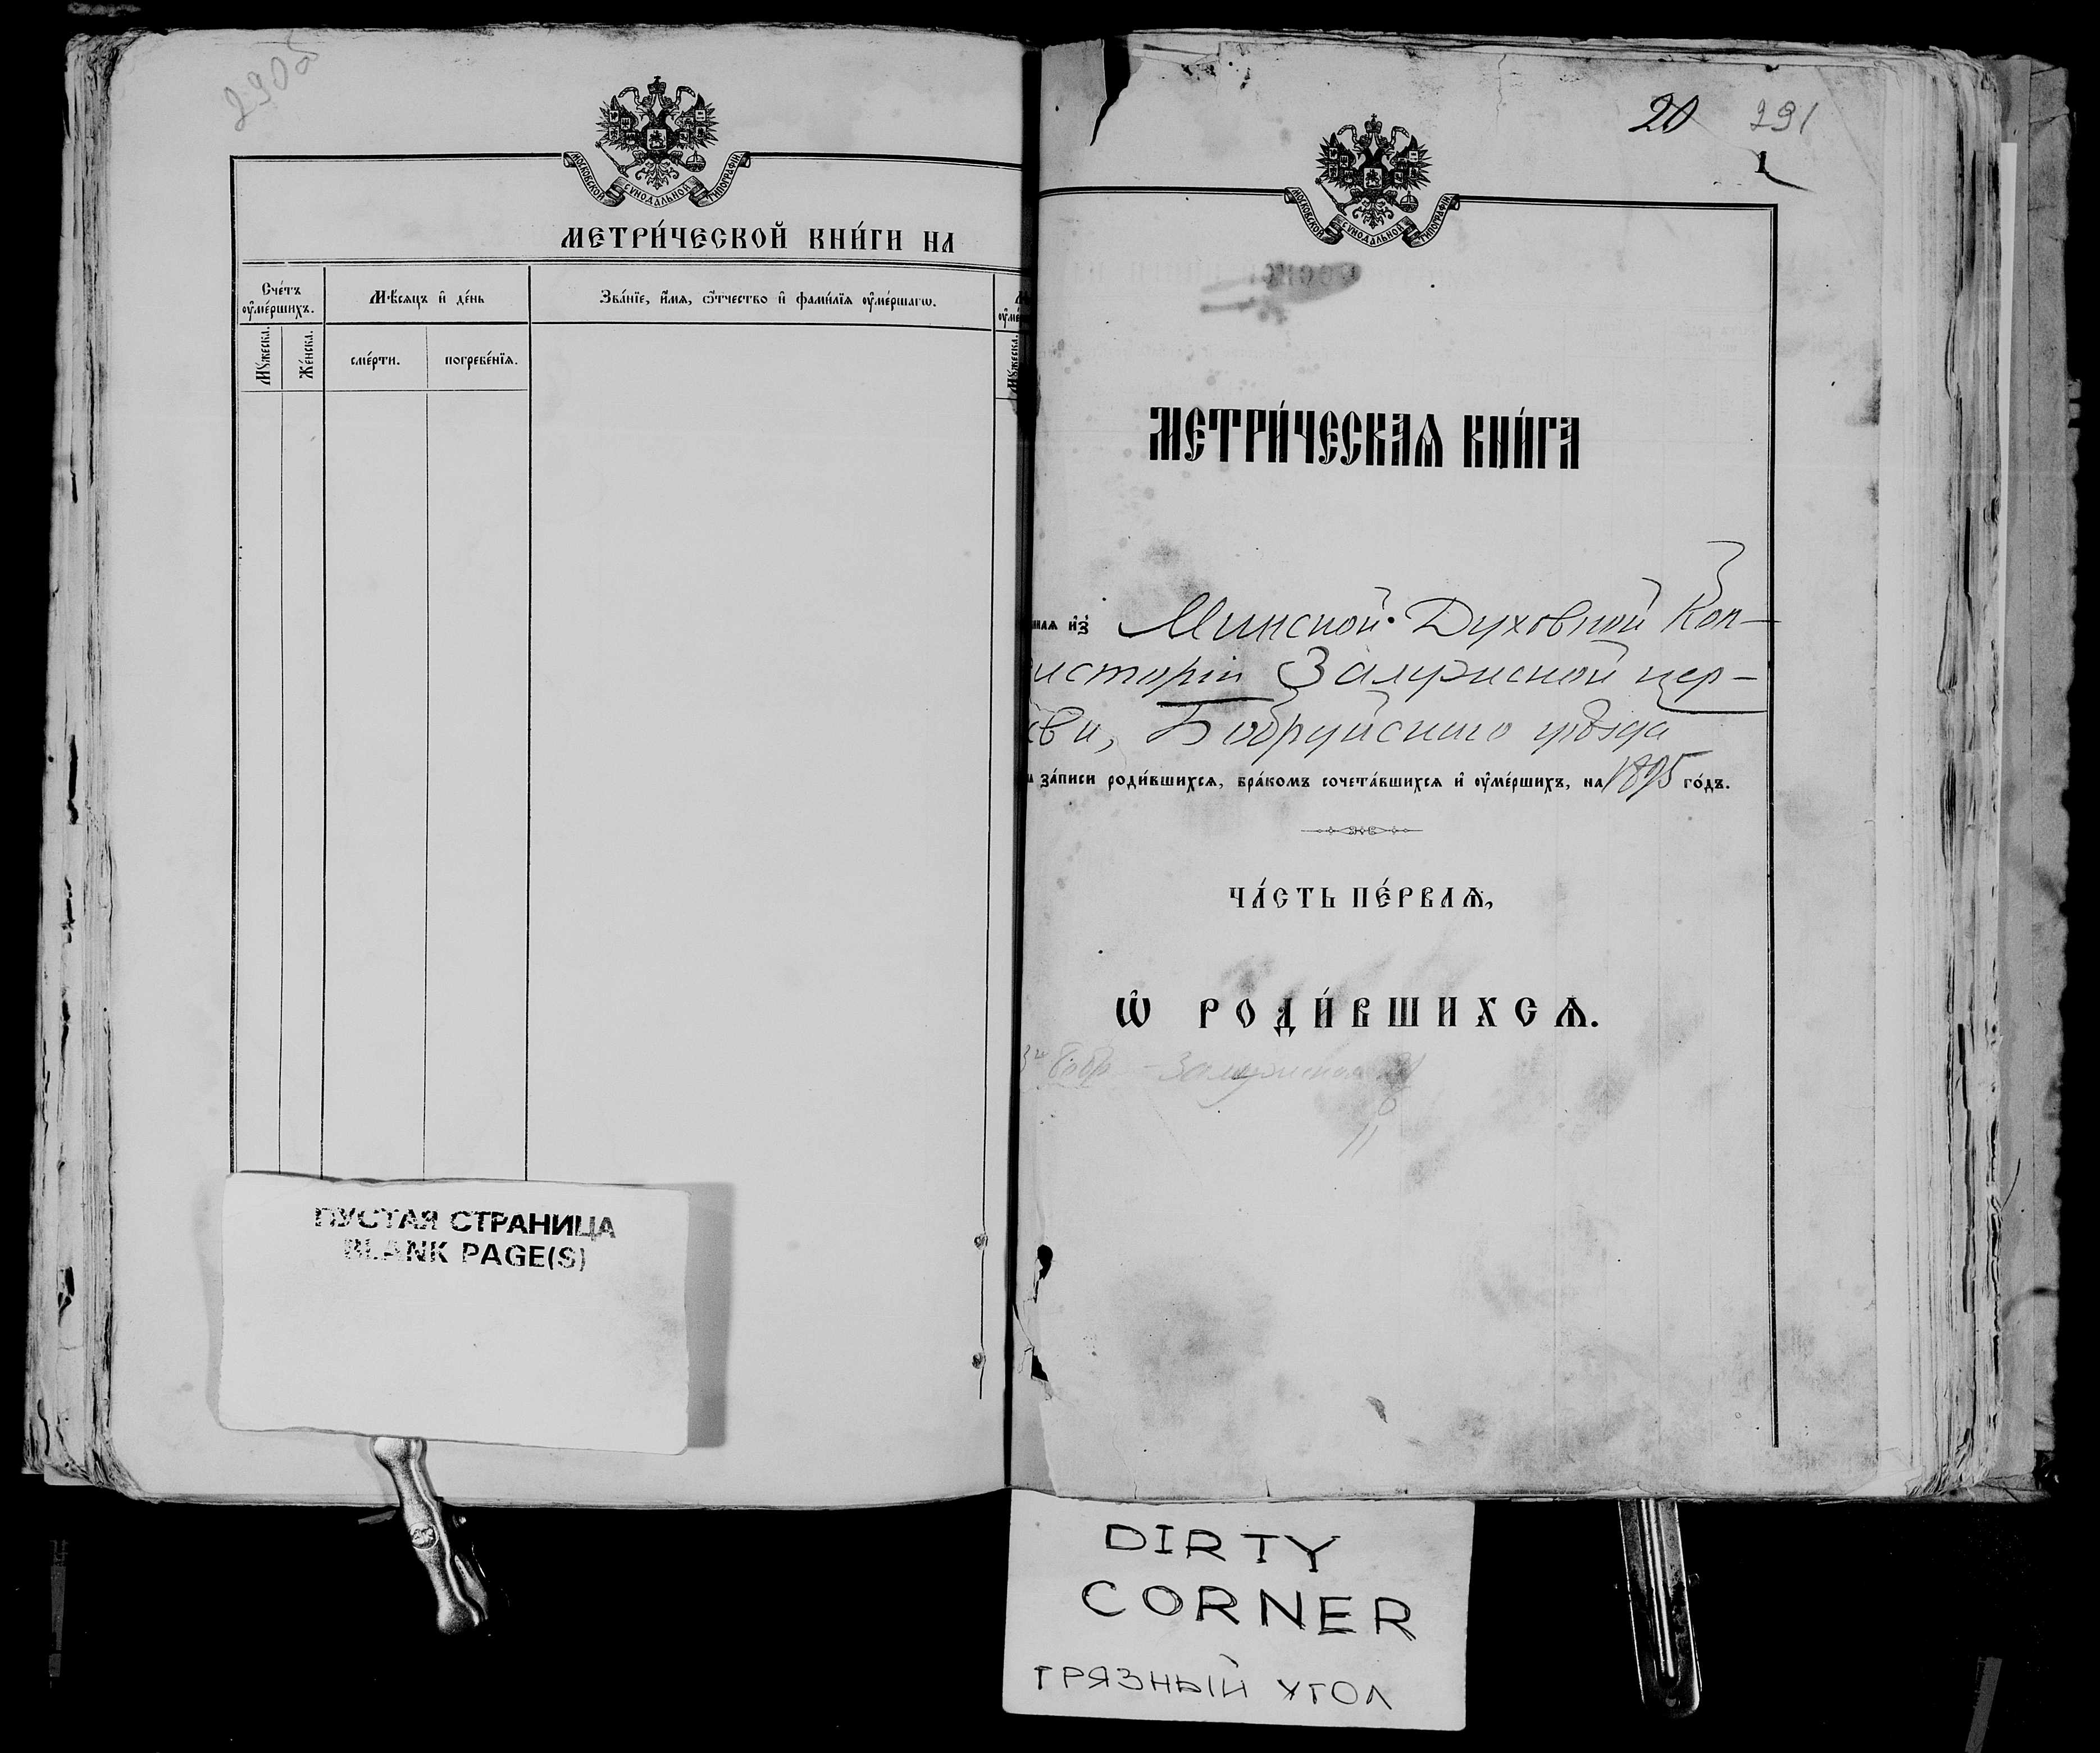 290об
МОСКОВСКОЙ СУНОДАЛЬНОЙ ТИПОГРАФІИ
МЕТРИ́ЧЕСКОЙ КНИ́ГИ НА
Сче́тъ оу҆ме́ршихъ.
Мѣ́сяцъ и҆ де́нь
Зва́нїе, и҆́мѧ, ѻ҆́тчество и҆ фами́лїѧ оу҆ме́ршагѡ.
Мꙋ́жеска.
Же́нска.
сме́рти.
погребе́нїѧ.
Мꙋ́жеска.
20 291
1
МОСКОВСКОЙ СУНОДАЛЬНОЙ ТИПОГРАФІИ
МЕТРИ́ЧЕСКАѦ КНИ́ГА
ннаѧ и҆з̾ Минской Духовной Кон-
систоріи Залужской цер-
кви, Бобруйскаго уѣзда
зáписи роди́вшихсѧ, бра́комъ сочета́вшихсѧ и҆ оу҆ме́ршихъ, на 1895 го́дъ.
ЧА́СТЬ ПЕ́РВАѦ,
Ѡ҆ РОДИ́ВШИХСѦ.
Бобр - Залужская
11
ПУСТАЯ СТРАНИЦА
BLANK PAGE(S)
DIRTY
CORNER
ГРЯЗНЫЙ УГОЛ